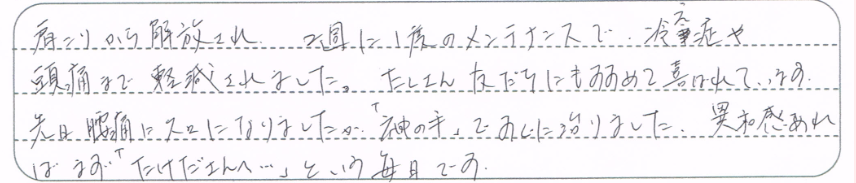 肩こりから解放され、2週に1度のメンテナンスで、冷え症や
頭痛まで軽減されました。たくさん友だちにもすすめて喜ばれています。
先日腰痛になりましたが「神の手」ですぐに治りました。異和感あれ
ばまず「たけださんへ…」という毎日です。